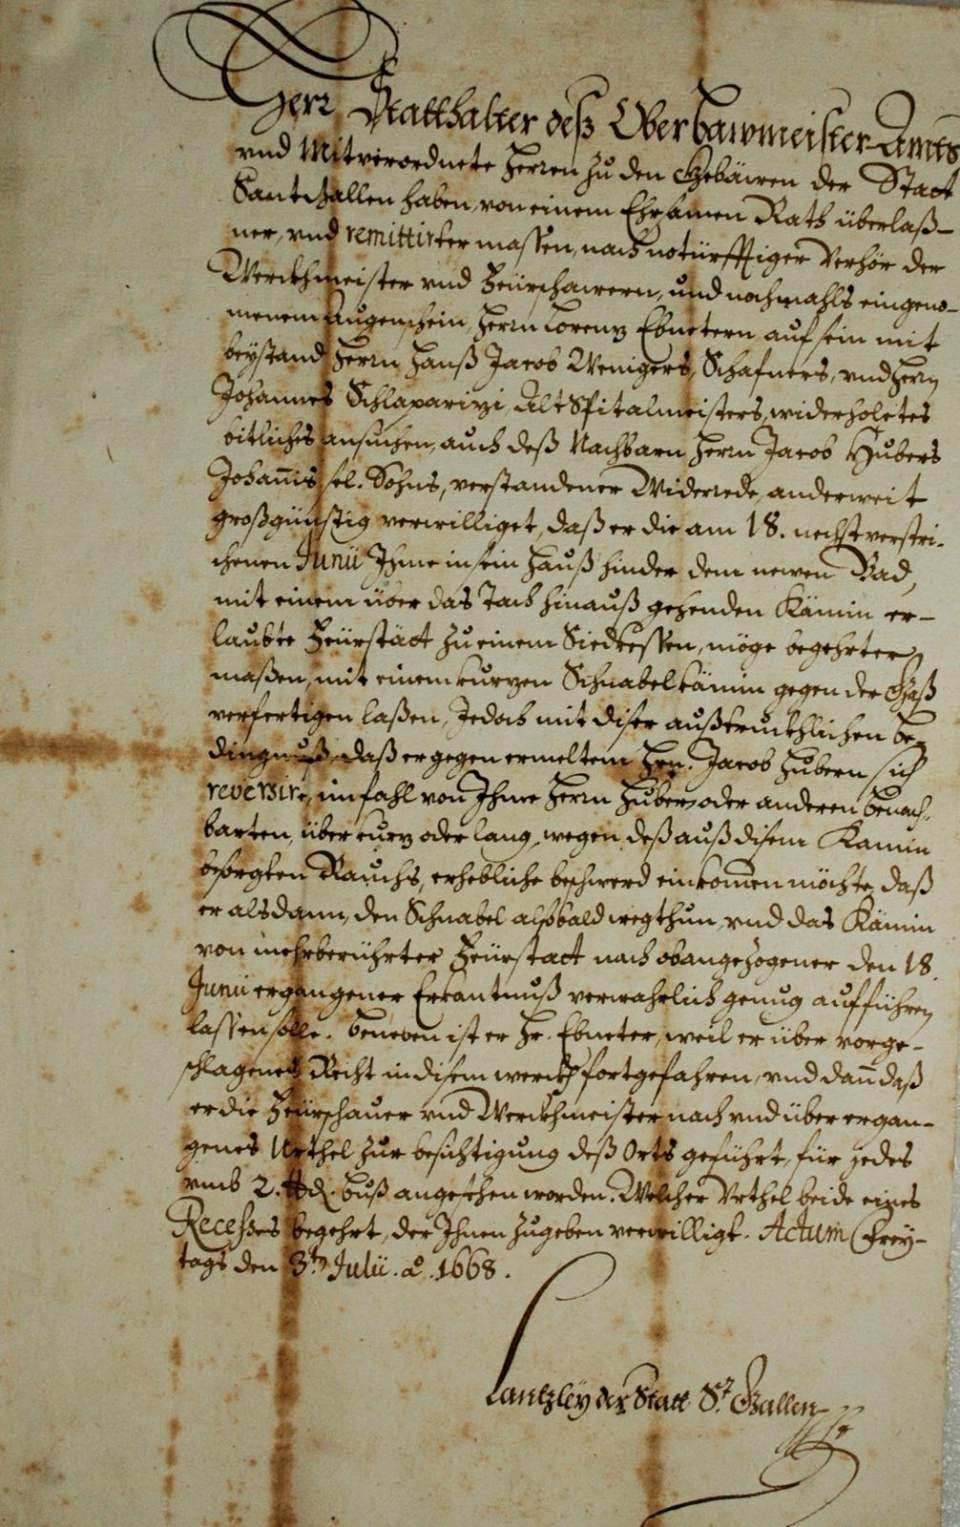 Herr Statthalter deß Oberbawmeister-Ambts
vnd Mitverordnete Herren zu den Gebäwen der Statt
Sant Gallen haben, von einem Ehrsamen Rath überlaß-
ner, vnd remittirter massen, nach notürfftiger Verhör der
Werckhmeister vnd Feürschawern, und nochmahls eingeno-
menem Augenschein, Herrn Lorenz Ebnetern, auf sein mit
beÿstand Herrn Hanß Jacob Wenigers, Schafners, vnd Herrn
Johannes Schlaparizi, Alt Spitalmeisters, widerholetes
bitliches ansuchen, auch deß Nachbarn Herrn Jacob Hubers
Johañis sel. Sohns, verstandener Widerrede, anderweit
großgünstig verwilliget, daß er die am 18. nechstverstri-
chenen Junii Ihme in sein Hauß hinder dem newen Bad,
mit einem über das Tach hinauß gehenden Kämin er-
laubte Feürstatt zu einem Siedkessen, möge begehrter
maßen, mit einem kurzen Schnabelkämin gegen der Gaß
verfertigen laßen, Jedoch mit diser außtruckhlichen be-
dingnuß, daß er gegen ermeltem Hrn. Jacob Hubern sich
reversire, im fahl von Ihme Herrn Huber, oder anderen benach-
barten, über kurz oder lang, wegen deß auß disem Kamin
besorgten Rauchs, erhebliche beschwerd einkom̄en möchte, daß
er alsdann, den Schnabel alsobald wegthun, vnd das Kämin
von mehrberührter Feürstatt nach obangezogener den 18.
Junii ergangener Erkantnuß verwahrlich genug aufführen
lassen solle. Beneben ist er Hr. Ebneter, weil er über vorge-
schlagenes Recht in disem werckh fortgefahren, vnd dañ daß
er die Feürschauer vnd Werckhmeister nach vnd über ergan-
genes Urthel zur besichtigung deß Orts geführt, für jedes
vmb 2. ℔ ₰. buß angesehen worden. Welcher Vrthel beide eines
Recesses begehrt, der Ihnen zugeben verwilligt. Actum Frey-
tags den 3ten Julii. aº. 1668.
Cantzleÿ der Statt St. Gallen